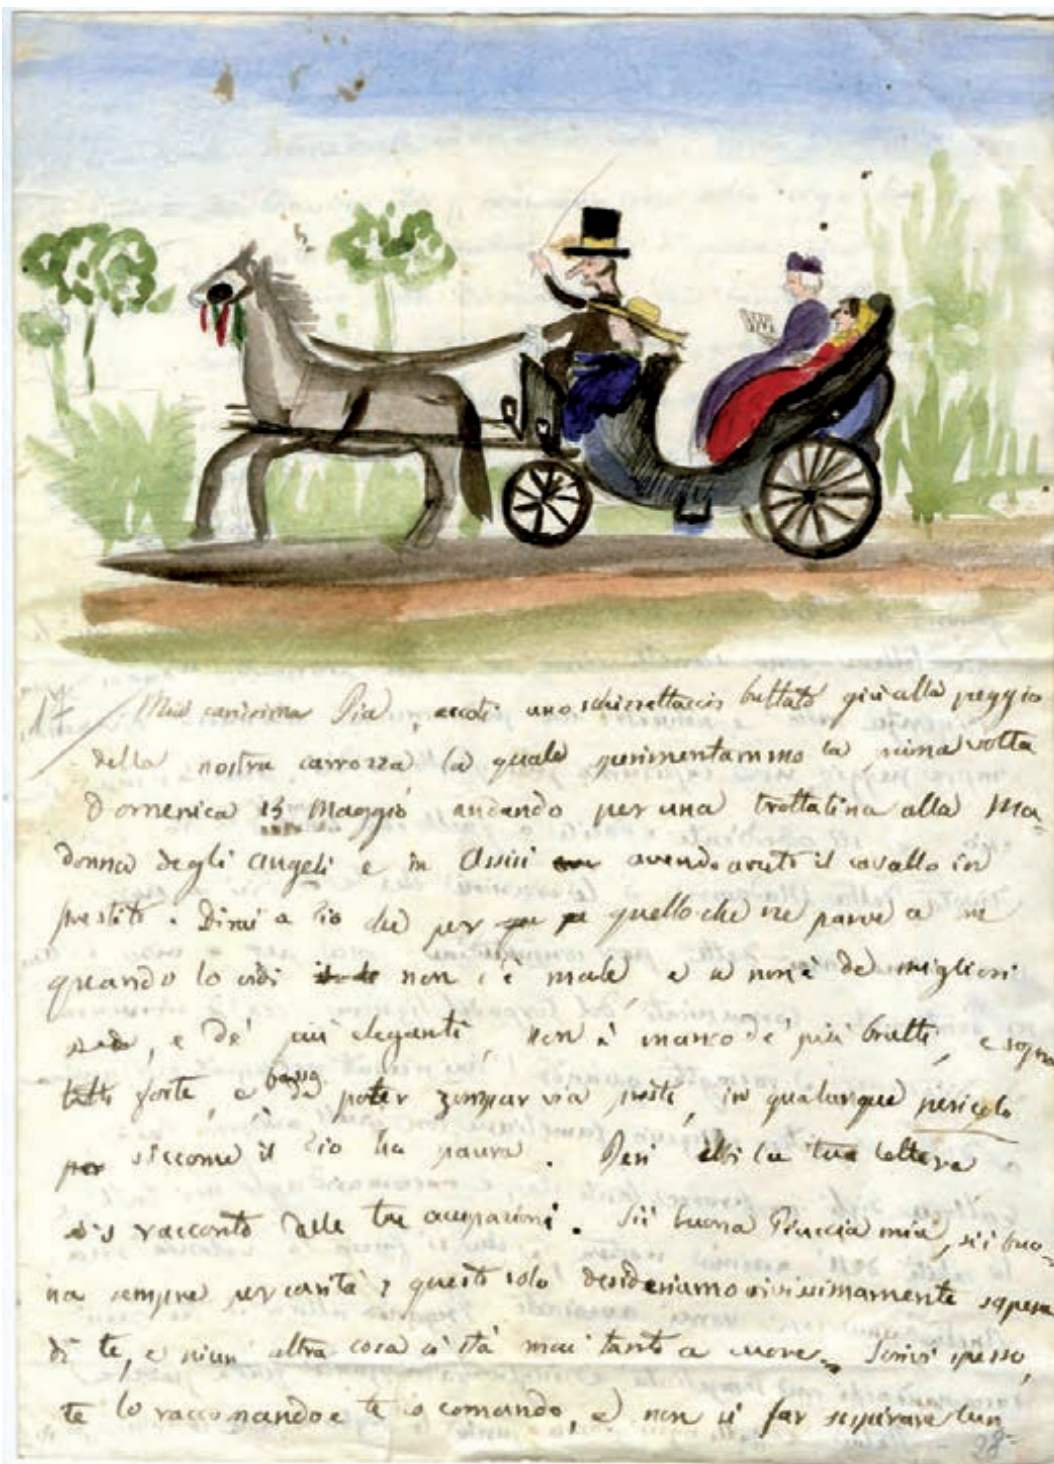 17
Mia carissima Pia, eccoti uno schizzettaccio buttato giù alla peggio
della nostra carrozza la quale sperimentammo la prima volta
Domenica 13 Maggio andando per una trottatina alla Ma-
donna degli Angeli e in Assisi avendo avuto il cavallo in
prestito. Dirai a Zio che per quello che ne parve a me
quando lo vidi non c'è male e se non è de' migliori
e de' più eleganti, non è manco de' più brutti, e sopra
tutto forte, e da poter zompar via presto, in qualunque pericolo
siccome il Zio ha paura. Ieri ebbi la tua lettera
racconto delle tue occupazioni. Sii buona Piuccia mia, sii buo-
na sempre per carità; questo solo desideriamo vivissimamente sapere
di te, e niun altra cosa ci stà mai tanto a cuore. Scrivi spesso,
te lo raccomando e te lo comando, e non ci far sospirare
28